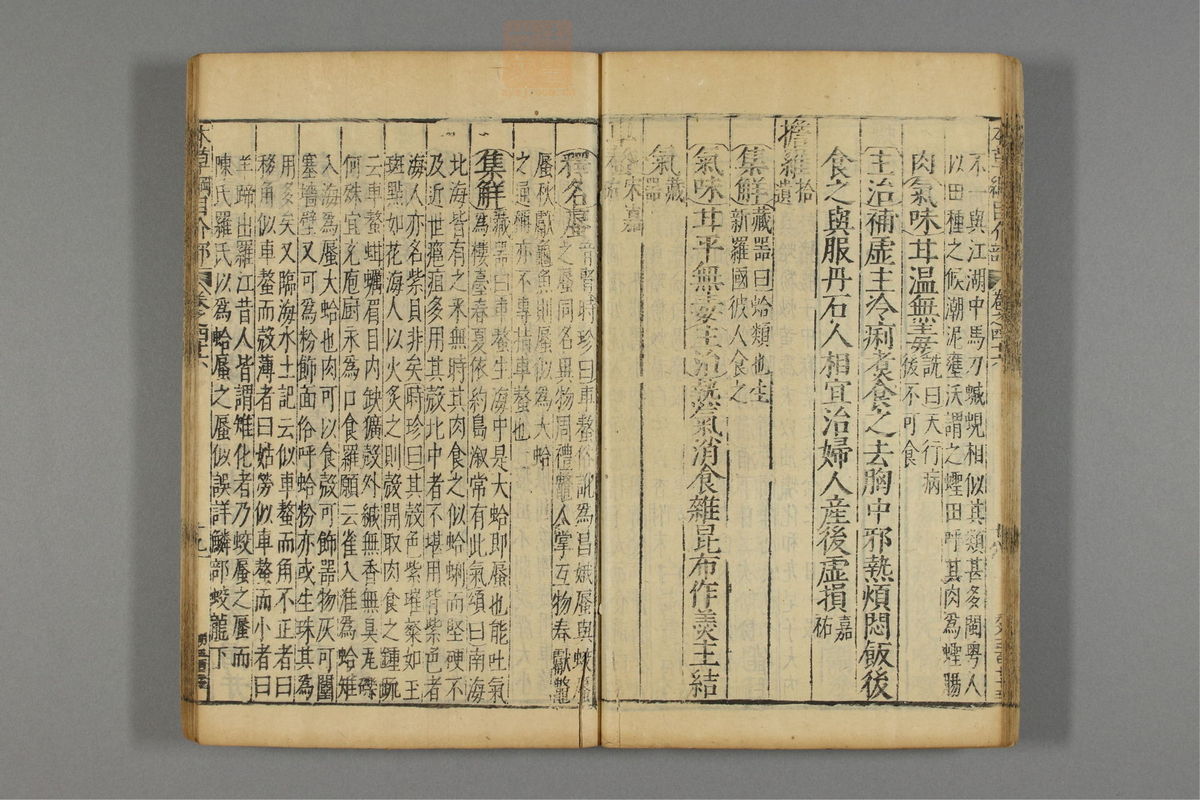 不一與江湖中馬刀蝛蜆相似其類甚多閩粤人
以田種之候潮泥壅沃謂之蟶田呼其肉為蟶腸
肉氣味甘温無毒詵曰天行病後不可食
主治補虛主冷痢煮食之去胸中邪熱煩悶飯後
食之與服丹石人相宜治婦人産後虛損嘉祐
擔羅拾遺
集解藏器曰蛤類也生新羅國彼人食之
氣味甘平無毒主治熱氣消食雜昆布作羹主結
氣藏器
宋嘉
釋名蜃音腎時珍曰車螯俗訛為昌娥蜃與蛟
之蜃同名異物周禮鼈人掌互物春獻鼈
蜃秋獻龜魚則蜃似為大蛤
之通稱亦不專指車螯也
集解藏器曰車螯生海中是大蛤即蜃也能吐氣
為樓臺春夏依約島溆常有此氣頌曰南海
北海皆有之采無時其肉食之似蛤蜊而堅硬不
及近世瘡疽多用其殼北中者不堪用背紫色者
海人亦名紫貝非矣時珍曰其殼色紫璀粲如玉
斑點如花海人以火炙之則殼開取肉食之鍾岏
云車螯蚶蠣眉目内缺獷殼外緘無香無臭瓦礫
何殊宜充庖厨永為口食羅願云雀入淮為蛤雉
入海為蜃大蛤也肉可以食殼可飾器物灰可闉
塞墻壁又可為粉飾面俗呼蛤粉亦或生珠其為
用多矣又臨海水土記云似車螯而角不正者曰
移角似車螯而殼薄者曰姑勞似車螯而小者曰
羊蹄出羅江昔人皆謂雉化者乃蛟蜃之蜃而
陳氏羅氏以為蛤蜃之蜃似誤詳鱗部蛟龍下
本草綱目介部 卷之四十六